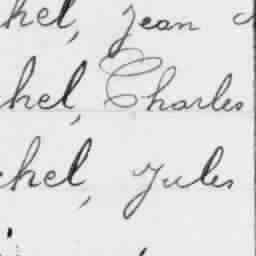 hel, Jean
hel, Charles
chel, Jules